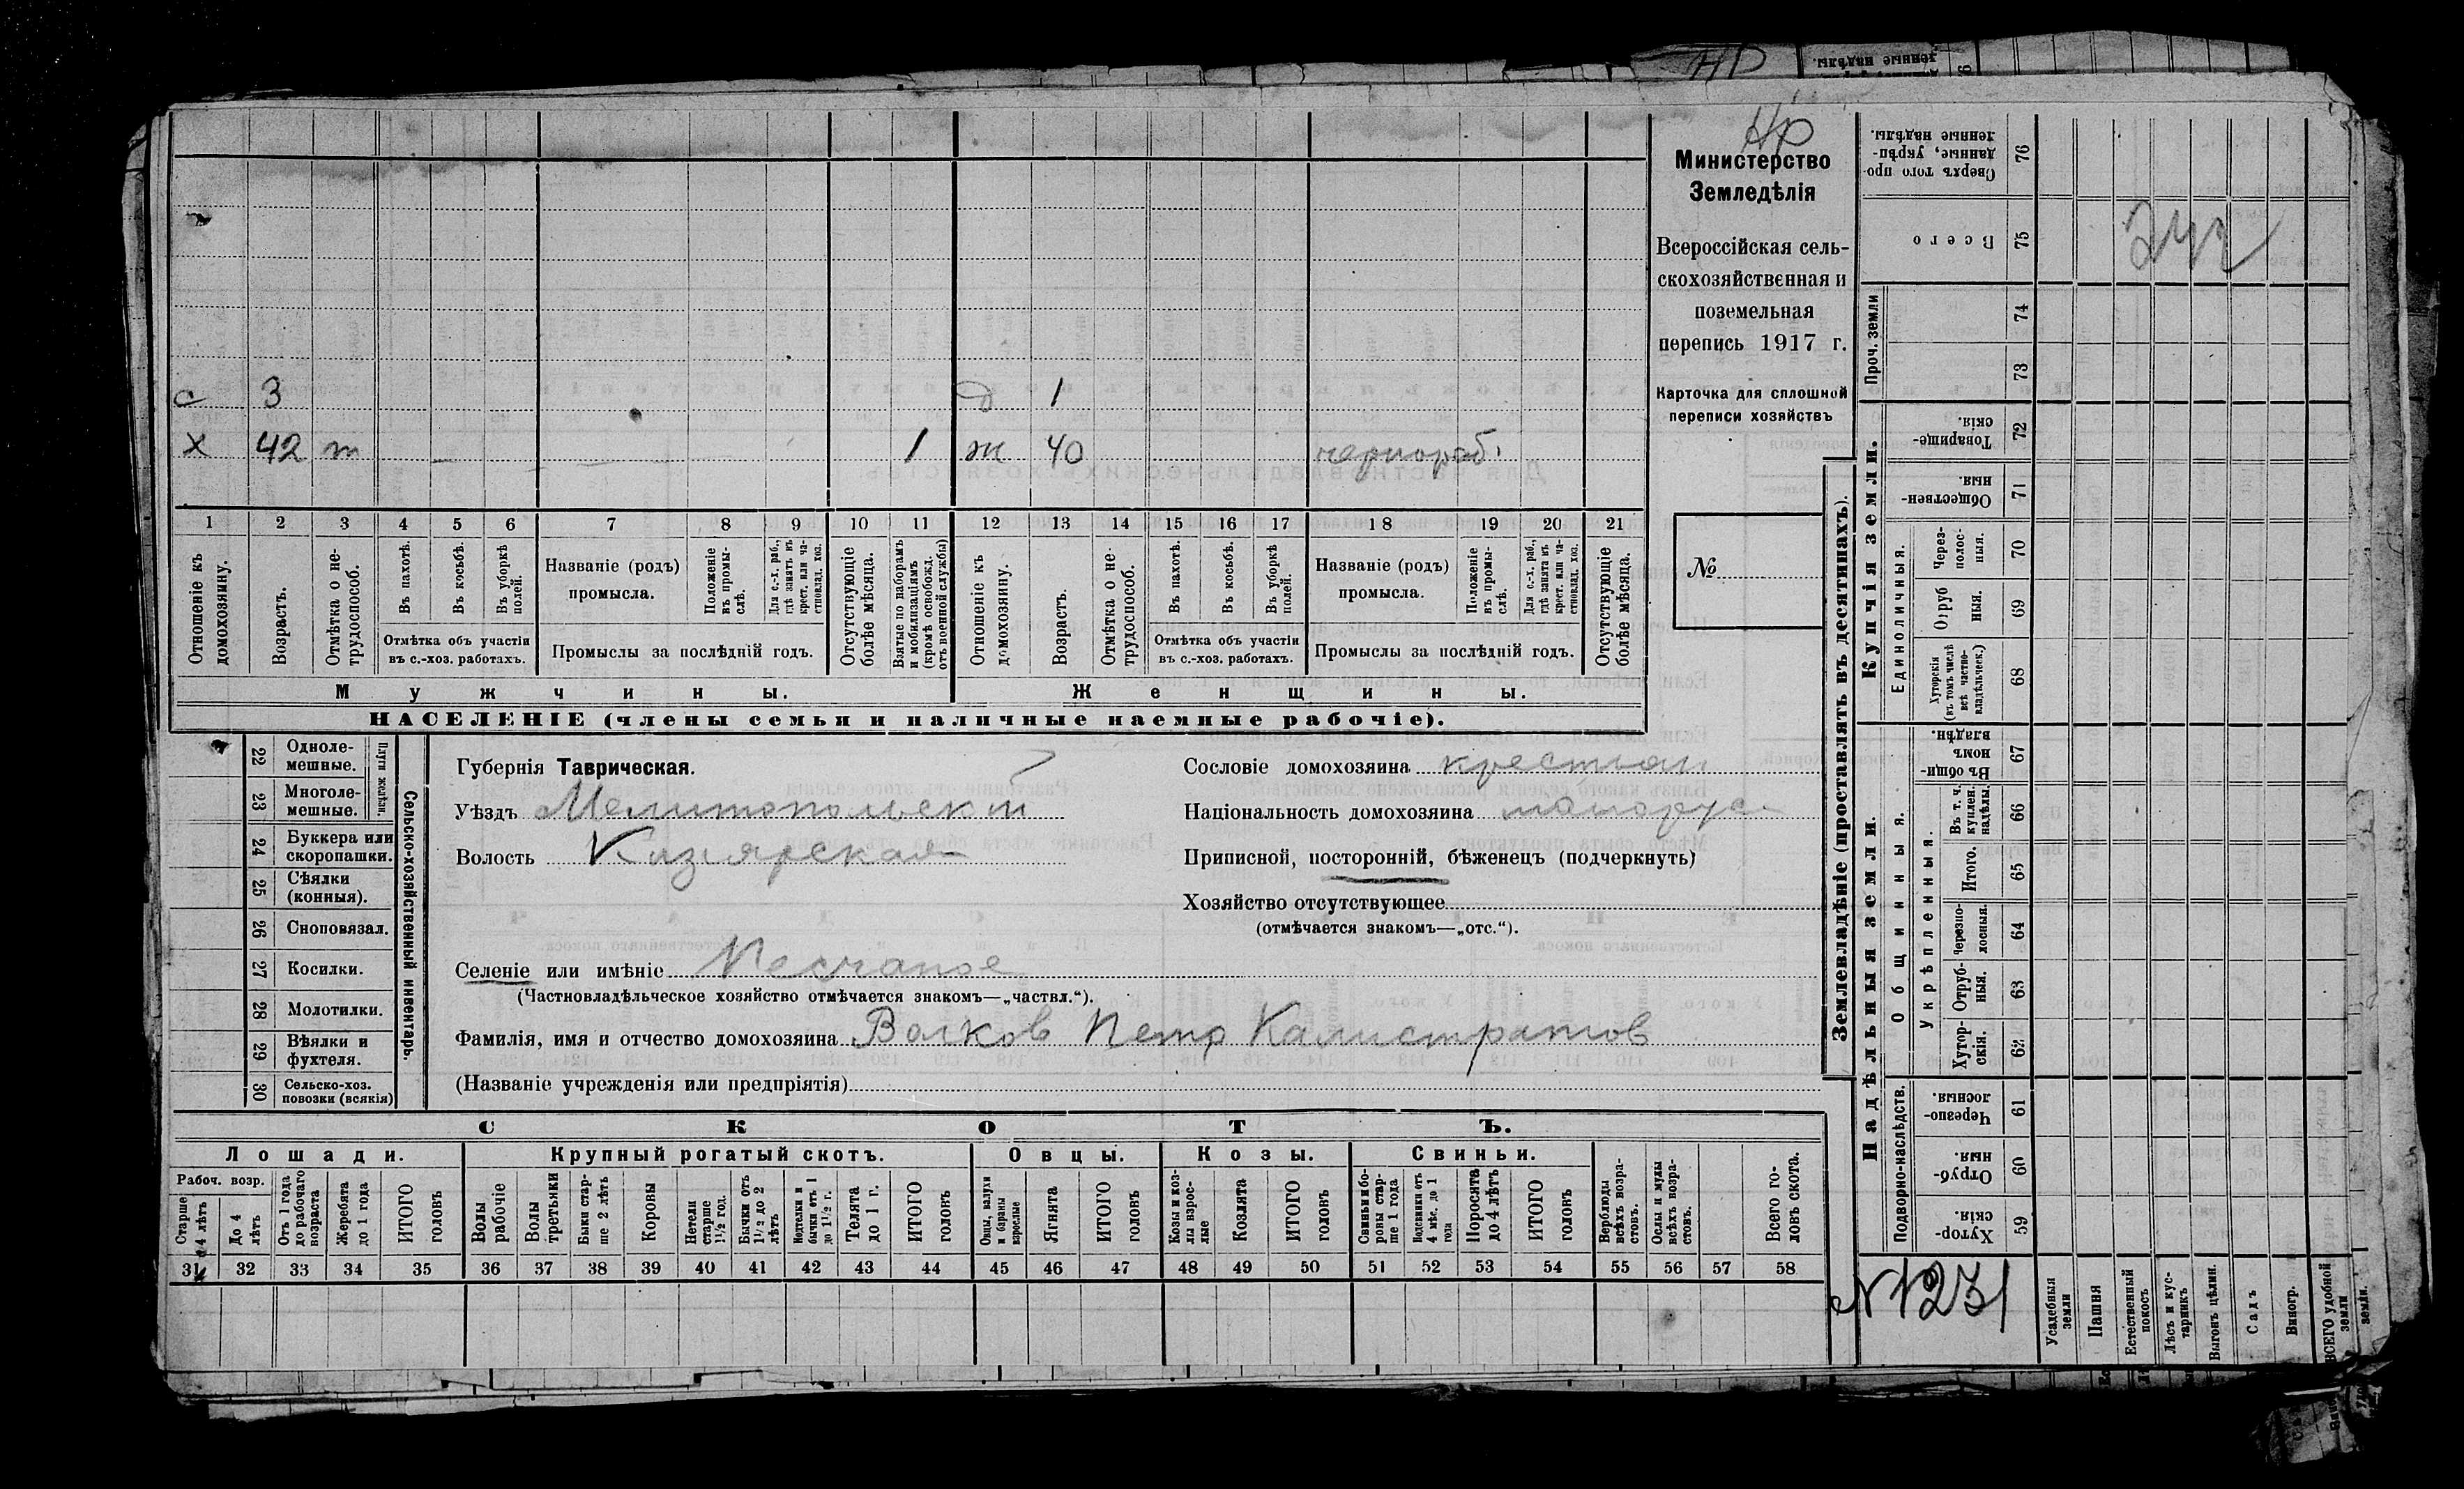 Нр
Министерство
Земледѣлія
Всероссійская сель-
скохозяйственная и
поземельная
перепись 1917 г.
Карточка для сплошной
переписи хозяйствъ
№
с 3 д 1
х 42 т 1 ж 40 чернораб.
1 2 3 4 5 6 7 8 9 10 11 12 13 14 15 16 17 18 19 20 21
Отношеніе къ домохозяину.
Возрастъ.
Отмѣтка о не-трудоспособ.
Въ пахотѣ.
Въ косьбѣ.
Въ уборкѣ полей.
Отмѣтка объ участіи
въ с.-хоз. работахъ.
Названіе (родъ)
промысла.
Положеніе въ промы-слѣ.
Для с.-х. раб., гдѣ занятъ въ крест. или ча-стновлад. хоз.
Промыслы за послѣдній годъ.
Отсутствующіе болѣе мѣсяца.
Взятые по наборамъ и мобилизаціямъ (кромѣ освобожд. отъ военной службы)
Отношеніе къ домохозяину.
Возрастъ.
Отмѣтка о не-трудоспособ.
Въ пахотѣ.
Въ косьбѣ.
Въ уборкѣ полей.
Отмѣтка объ участіи
въ с.-хоз. работахъ.
Названіе (родъ)
промысла.
Положеніе въ промы-слѣ.
Для с.-х. раб., гдѣ занята въ крест. или ча-стновлад. хоз.
Промыслы за послѣдній годъ.
Отсутствующіе болѣе мѣсяца.
Мужчины. Женщины.
НАСЕЛЕНІЕ (члены семьи и наличные наемные рабочіе).
22 Одноле-мешные.
23 Многоле-мешные.
Плуги желѣзн.
24 Буккера или скоропашки.
25 Сѣялки (конныя).
26 Сноповязал.
27 Косилки.
28 Молотилки.
29 Вѣялки и фухтеля.
30 Сельско-хоз. повозки (всякія)
Сельско-хозяйственный инвентарь.
Губернія Таврическая.
Уѣздъ Мелитопольскій
Волость Кизіярская
Сословіе домохозяина крестьян
Національность домохозяина малорус
Приписной, посторонній, бѣженецъ (подчеркнуть)
Хозяйство отсутствующее
(отмѣчается знакомъ—„отс.“).
Селеніе или имѣніе Песчаное
(Частновладѣльческое хозяйство отмѣчается знакомъ—„частвл.“).
Фамилія, имя и отчество домохозяина Волков Петр Калистратов
(Названіе учрежденія или предпріятія)
СКОТЪ.
Лошади. Крупный рогатый скотъ. Овцы. Козы. Свиньи.
Рабоч. возр.
Старше 4 лѣтъ
До 4 лѣтъ
Отъ 1 года до рабочаго возраста
Жеребята до 1 года
ИТОГО головъ
Волы рабочіе
Волы третьяки
Быки стар-ше 2 лѣтъ
Коровы
Нетели старше 1½ год.
Бычки отъ 1½ до 2 лѣтъ
Подтелки и бычки отъ 1 до 1½ г.
Телята до 1 г.
ИТОГО головъ
Овцы, валухи и бараны взрослые
Ягнята
ИТОГО головъ
Козы и коз-лы взрос-лые
Козлята
ИТОГО головъ
Свиньи и бо-ровы стар-ше 1 года
Подсвинки отъ 4 мѣс. до 1 года
Поросята до 4 лѣтъ
ИТОГО головъ
Верблюды всѣхъ возра-стовъ.
Ослы и мулы всѣхъ возра-стовъ.
Всего го-ловъ скота.
31 32 33 34 35 36 37 38 39 40 41 42 43 44 45 46 47 48 49 50 51 52 53 54 55 56 57 58
Землевладѣніе (проставлять въ десятинахъ).
Купчія земли.
Надѣльныя земли.
Сверхъ того про-данные, укрѣп-ленные надѣлы. 76
Всего 75
Проч. земли
74
73
Товарище-скія 72
Обществен-ныя. 71
Единоличныя.
Через-полос-ныя. 70
Отруб-ныя. 69
Хуторскія (въ томъ числѣ всѣ частно-владѣльческ.) 68
Общинныя.
Въ общи-номъ владѣн. 67
Укрѣпленныя.
Въ т. ч. куплен. надѣлы. 66
Итого. 65
Черезпо-лосныя. 64
Отруб-ныя. 63
Хутор-скія. 62
Подворно-наслѣдств.
Черезпо-лосныя. 61
Отруб-ныя. 60
Хутор-скія. 59
N 1231
Усадебныя земли
Пашня
Естественный покосъ
Лѣсъ и кус-тарникъ
Выгонъ цѣлин.
Садъ
Виногр.
ВСЕГО удобной земли